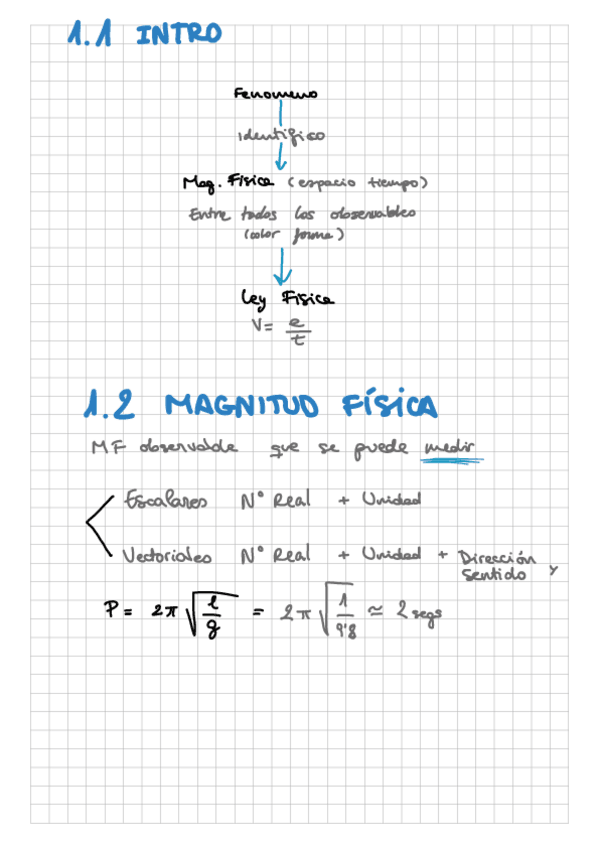 1.1 INTRO
Fenomeno
identifico
Mag. Física (espacio tiempo)
Entre todos los observables
(color forma)
Ley Física
V = e/t
1.2 MAGNITUD FÍSICA
MF observable que se puede medir
Escalares Nº Real + Unidad
Vectoriales Nº Real + Unidad + Dirección y
sentido
P = 2π √(l/g) = 2π √(1/9'8) ≃ 2 segs